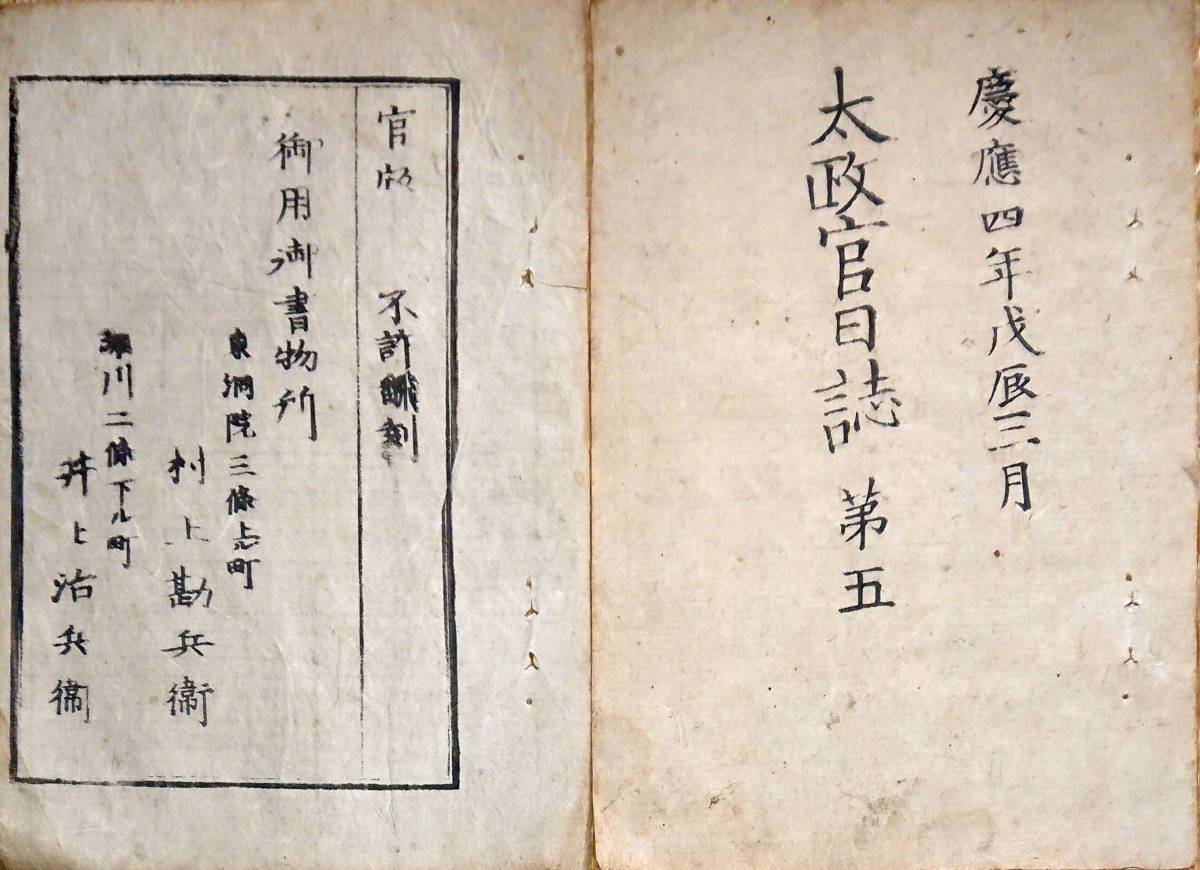 慶應四年戊辰三月
太政官日誌 第五
官版 不許飜刻
御用御書物所
東洞院三條上ル町
村上勘兵衛
堀川二條下ル町
井上治兵衛